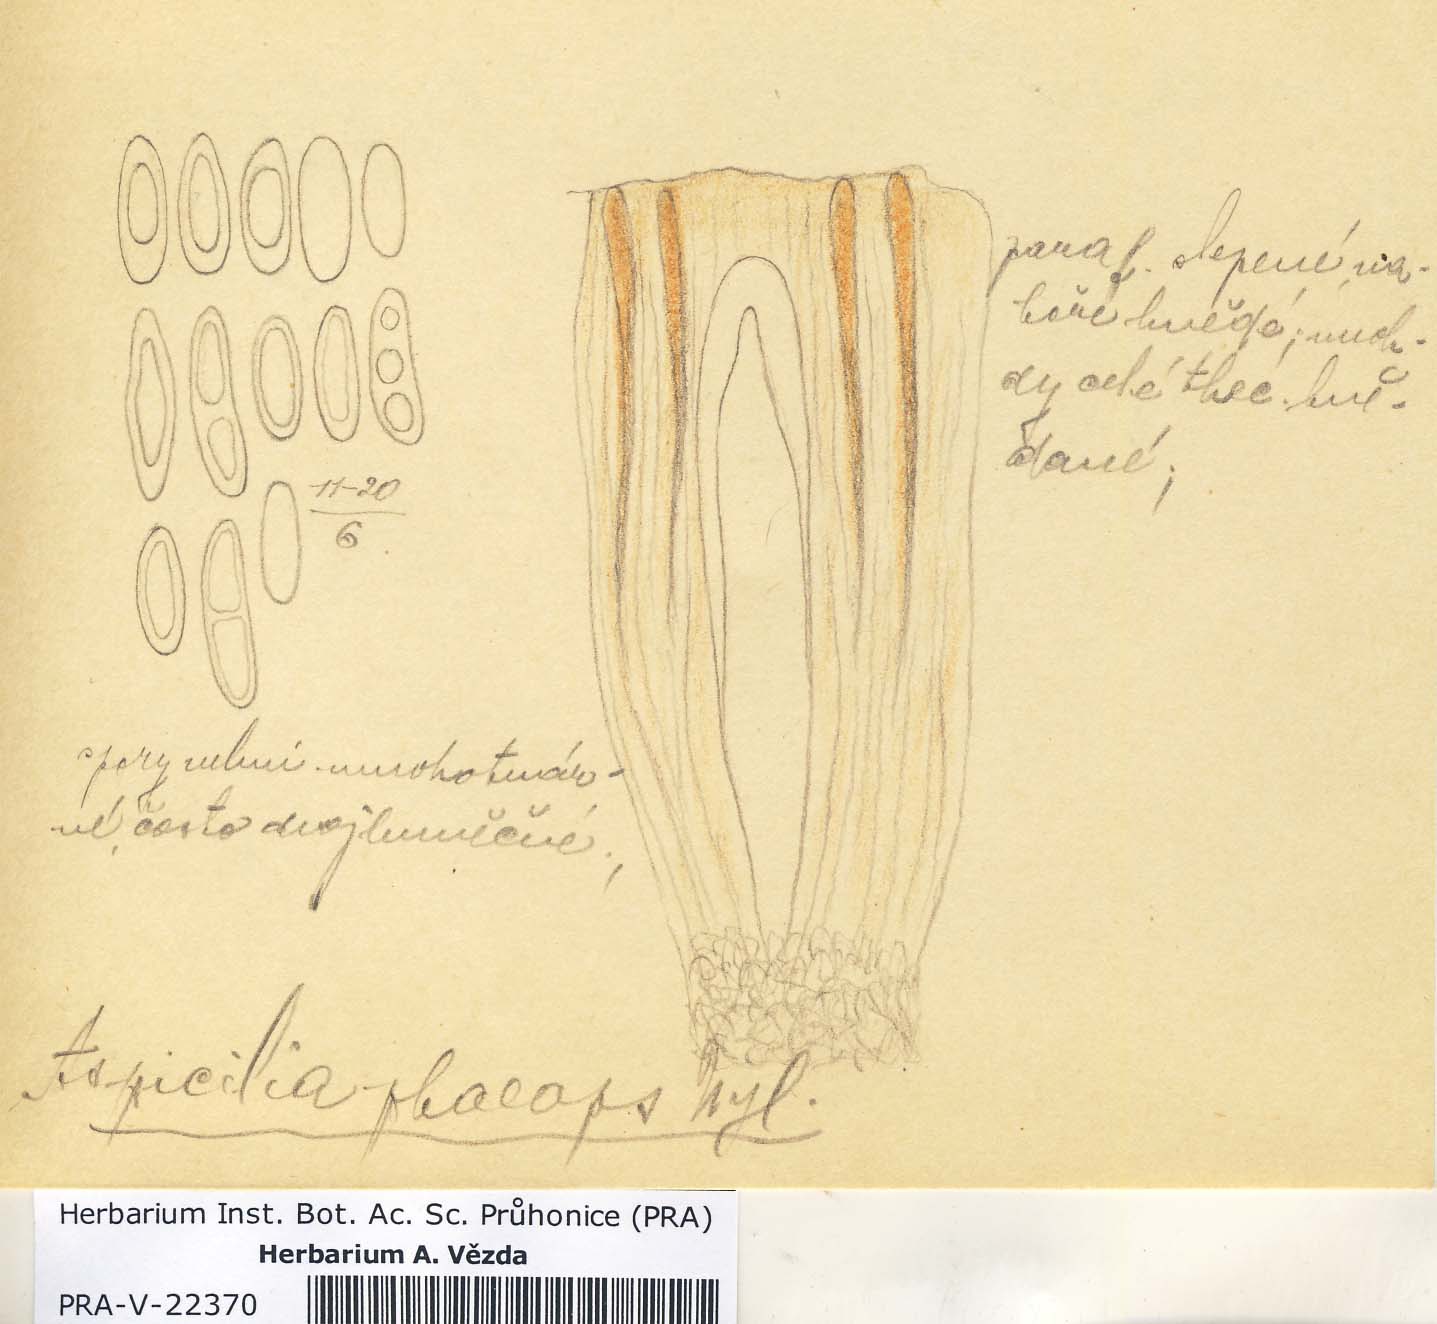 paraf. slepené, na-
hoře hnědé; někdy
dy celé tlusté hně-
dané;
11-20
6
spory velmi mnohotvár-
né, často dvojbuněčné;
Aspicilia phaeops Nyl.
Herbarium Inst. Bot. Ac. Sc. Průhonice (PRA)
Herbarium A. Vězda
PRA-V-22370